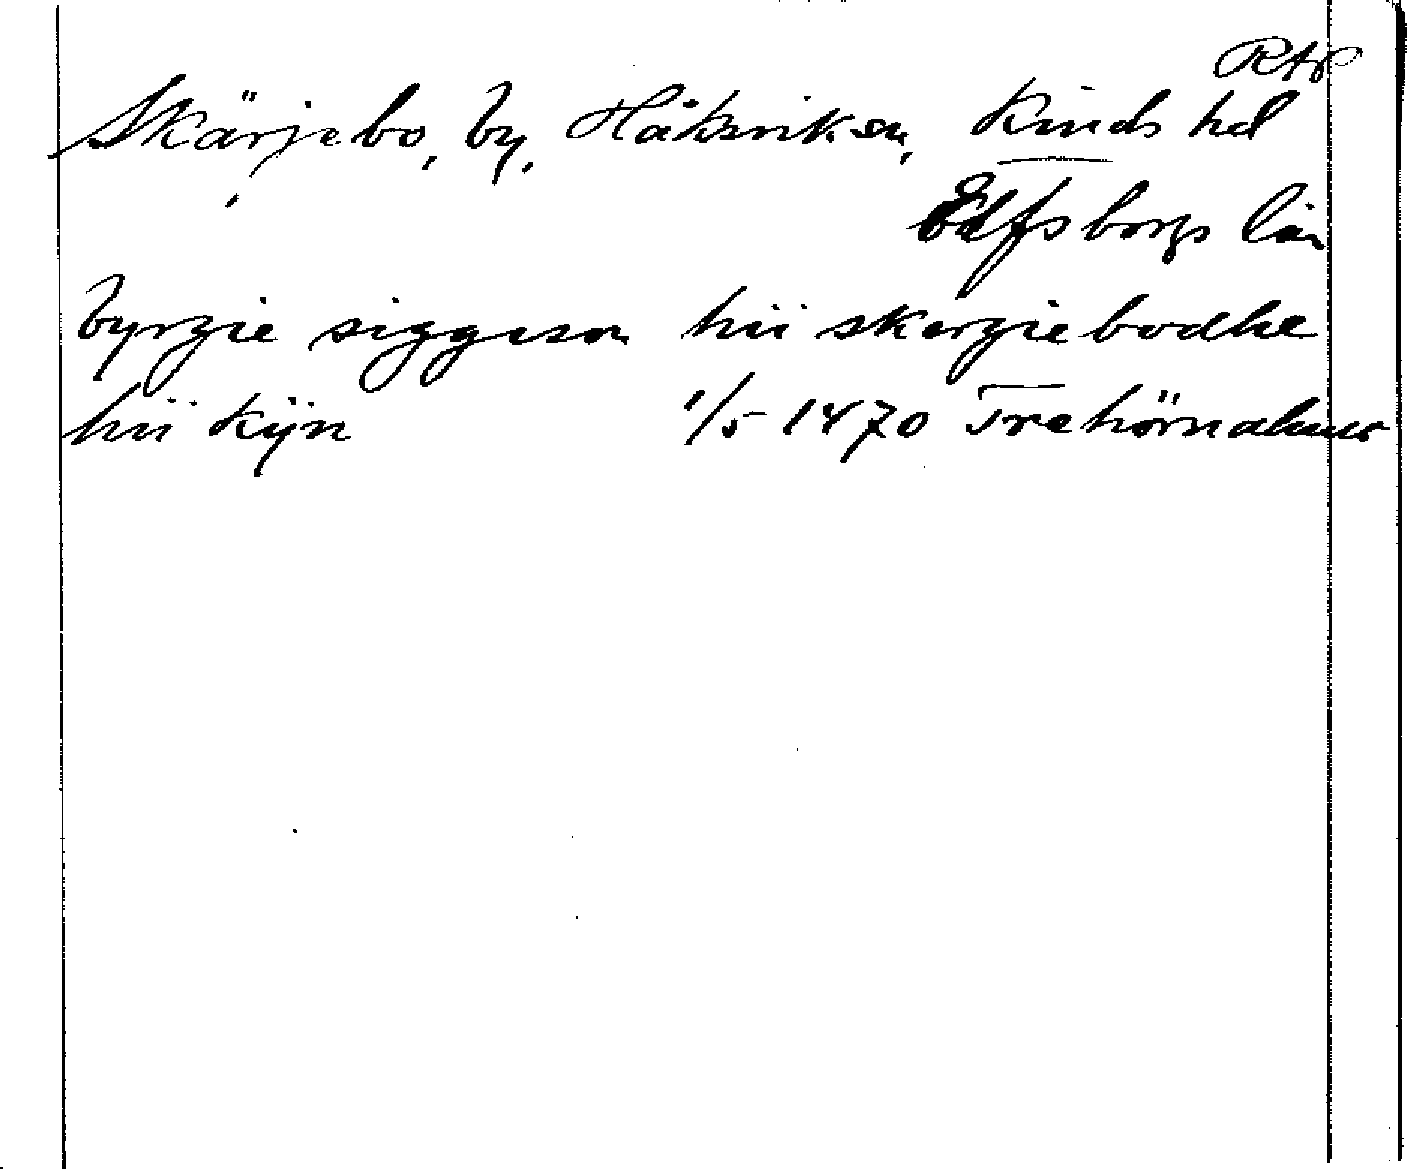 RAP
Skärjebo, by, Håksviks sn, Kinds hd
Elfsborgs län
byrgie siggeson hii skergiebodhe
hii kijn 1/5 1470 Trehörna